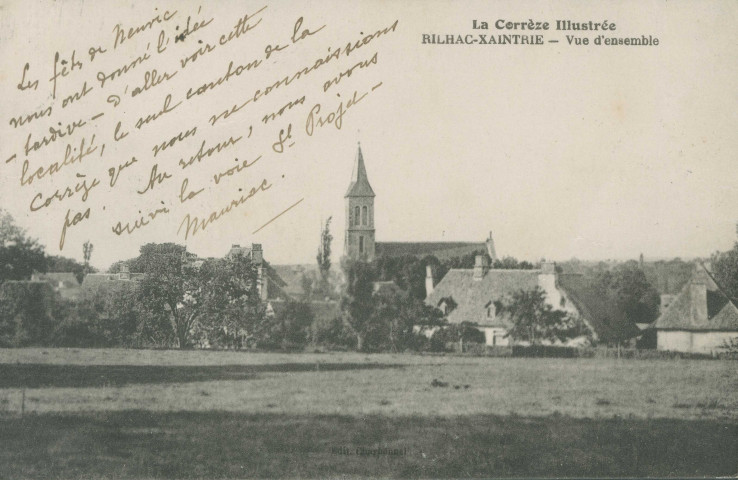 La Corrèze Illustrée
RILHAC-XAINTRIE – Vue d'ensemble
Les fêts de Neuvic
nous ont donné l'idée
– tardive – d'aller voir cette
localité, le seul canton de la
Corrèze que nous ne connaissions
pas. Au retour, nous avons
suivi la voie St Projet –
Mauriac.
Edit.